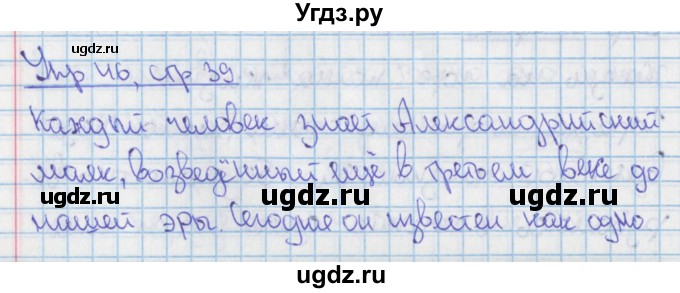 Угдз.ру
Упр 46, стр 39.
Каждый человек знает Александрийский
маяк, возведённый ещё в третьем веке до
нашей эры. Сегодня он известен как одно
ugdz.ru
ugdz.ru
ugdz.ru
ugdz.ru
ugdz.ru
ugdz.ru
ugdz.ru